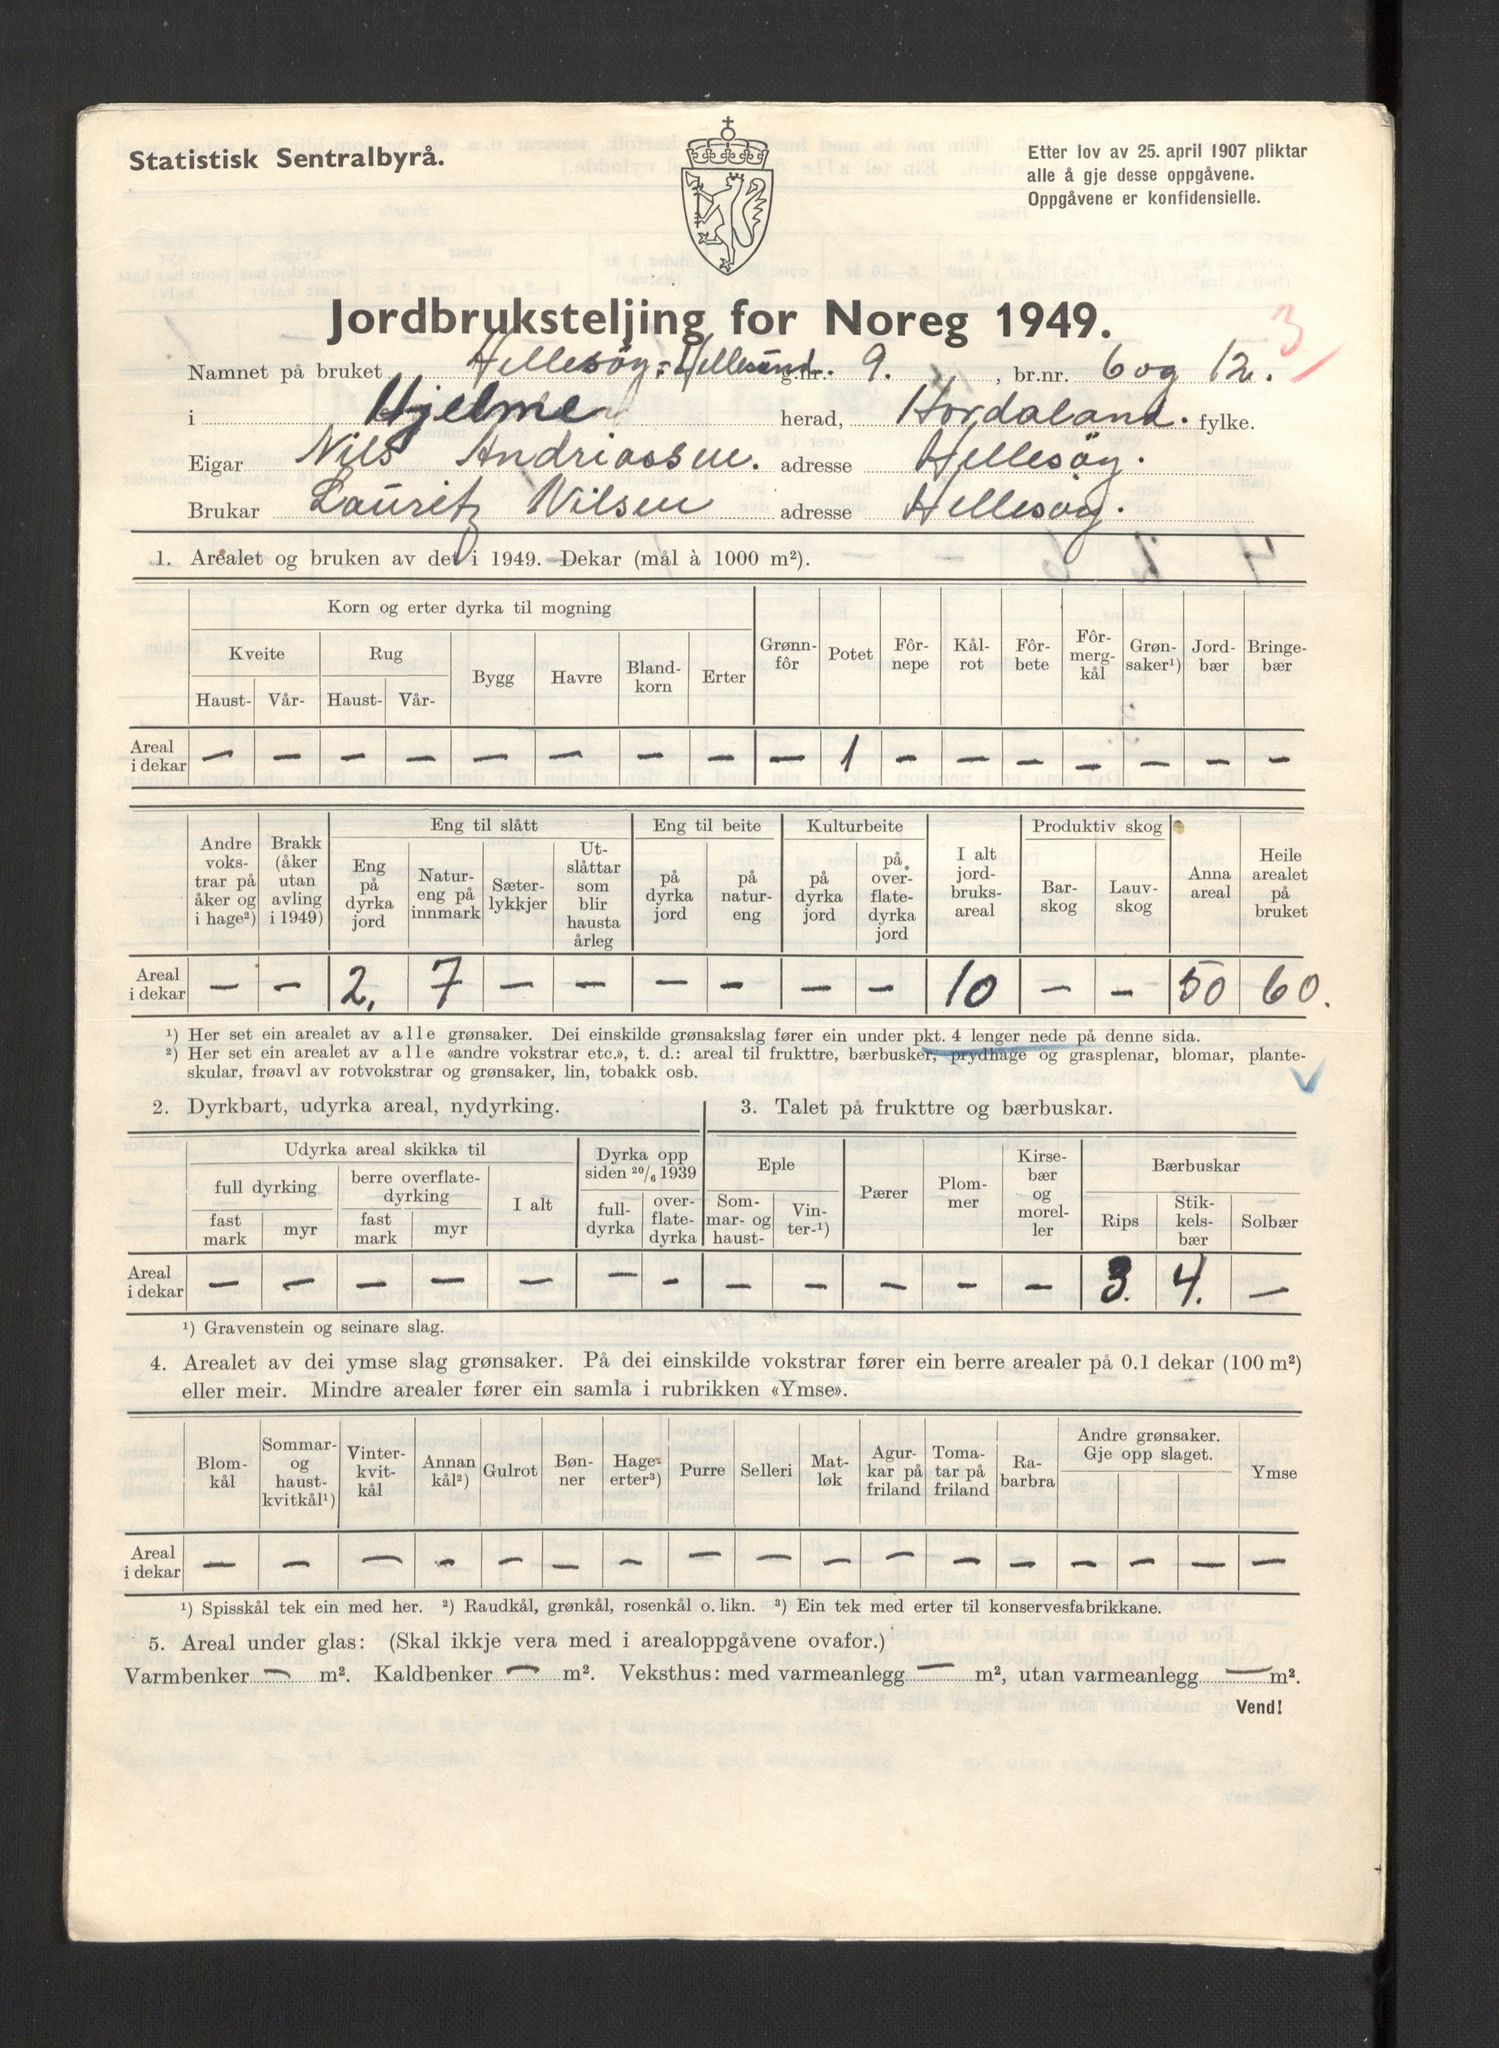 Statistisk Sentralbyrå.
Etter lov av 25. april 1907 pliktar
alle å gje desse oppgåvene.
Oppgåvene er konfidensielle.
Jordbruksteljing for Noreg 1949.
3
Namnet på bruket Hellesöy, Hellesund. g.nr. 9. , br.nr. 6 og 12.
i Hjelme herad, Hordaland. fylke.
Eigar Nils Andriassen. adresse Hellesöy.
Brukar Lauritz Nilsen adresse Hellesöy.
1. Arealet og bruken av det i 1949. Dekar (mål à 1000 m²).
Korn og erter dyrka til mogning
Kveite Rug Bygg Havre Bland-korn Erter Grønn-fôr Potet Fôr-nepe Kål-rot Fôr-bete Fôr-merg-kål Grøn-saker¹) Jord-bær Bringe-bær
Haust- Vår- Haust- Vår-
Areal i dekar — — — — — — — — — 1 — — — — — — —
Andre voks-trar på åker og i hage²) Brakk (åker utan avling i 1949) Eng til slått Eng til beite Kulturbeite I alt jord-bruks-areal Produktiv skog Anna areal Heile arealet på bruket
Eng på dyrka jord Natur-eng på innmark Sæter-lykkjer Ut-slåttar som blir hausta årleg på dyrka jord på natur-eng på dyrka jord på over-flate-dyrka jord Bar-skog Lauv-skog
Areal i dekar — — 2. 7 — — — — — — 10 — — 50 60.
¹) Her set ein arealet av alle grønsaker. Dei einskilde grønsakslag fører ein under pkt. 4 lenger nede på denne sida.
²) Her set ein arealet av alle «andre vokstrar etc.», t. d.: areal til frukttre, bærbusker, prydhage og grasplenar, blomar, plante-
skular, frøavl av rotvokstrar og grønsaker, lin, tobakk osb.
2. Dyrkbart, udyrka areal, nydyrking.
3. Talet på frukttre og bærbuskar.
Udyrka areal skikka til Dyrka opp siden 20/6 1939 Eple Pærer Plom-mer Kirse-bær og morel-ler Bærbuskar
full dyrking berre overflate-dyrking I alt full-dyrka over-flate-dyrka Som-mar- og haust- Vin-ter-¹) Rips Stik-kels-bær Solbær
fast mark myr fast mark myr
Areal i dekar — — — — — — — — — — — — 3. 4. —
¹) Gravenstein og seinare slag.
4. Arealet av dei ymse slag grønsaker. På dei einskilde vokstrar fører ein berre arealer på 0.1 dekar (100 m²)
eller meir. Mindre arealer fører ein samla i rubrikken «Ymse».
Blom-kål Sommar- og haust-kvitkål¹) Vinter-kvit-kål Annan kål²) Gulrot Bøn-ner Hage-erter³) Purre Selleri Mat-løk Agur-kar på friland Toma-tar på friland Ra-barbra Andre grønsaker. Gje opp slaget. Ymse
Areal i dekar — — — — — — — — — — — — — — — — —
¹) Spisskål tek ein med her. ²) Raudkål, grønkål, rosenkål o. likn. ³) Ein tek med erter til konservesfabrikkane.
5. Areal under glas: (Skal ikkje vera med i arealoppgåvene ovafor.)
Varmbenker — m². Kaldbenker — m². Veksthus: med varmeanlegg — m², utan varmeanlegg — m².
Vend!